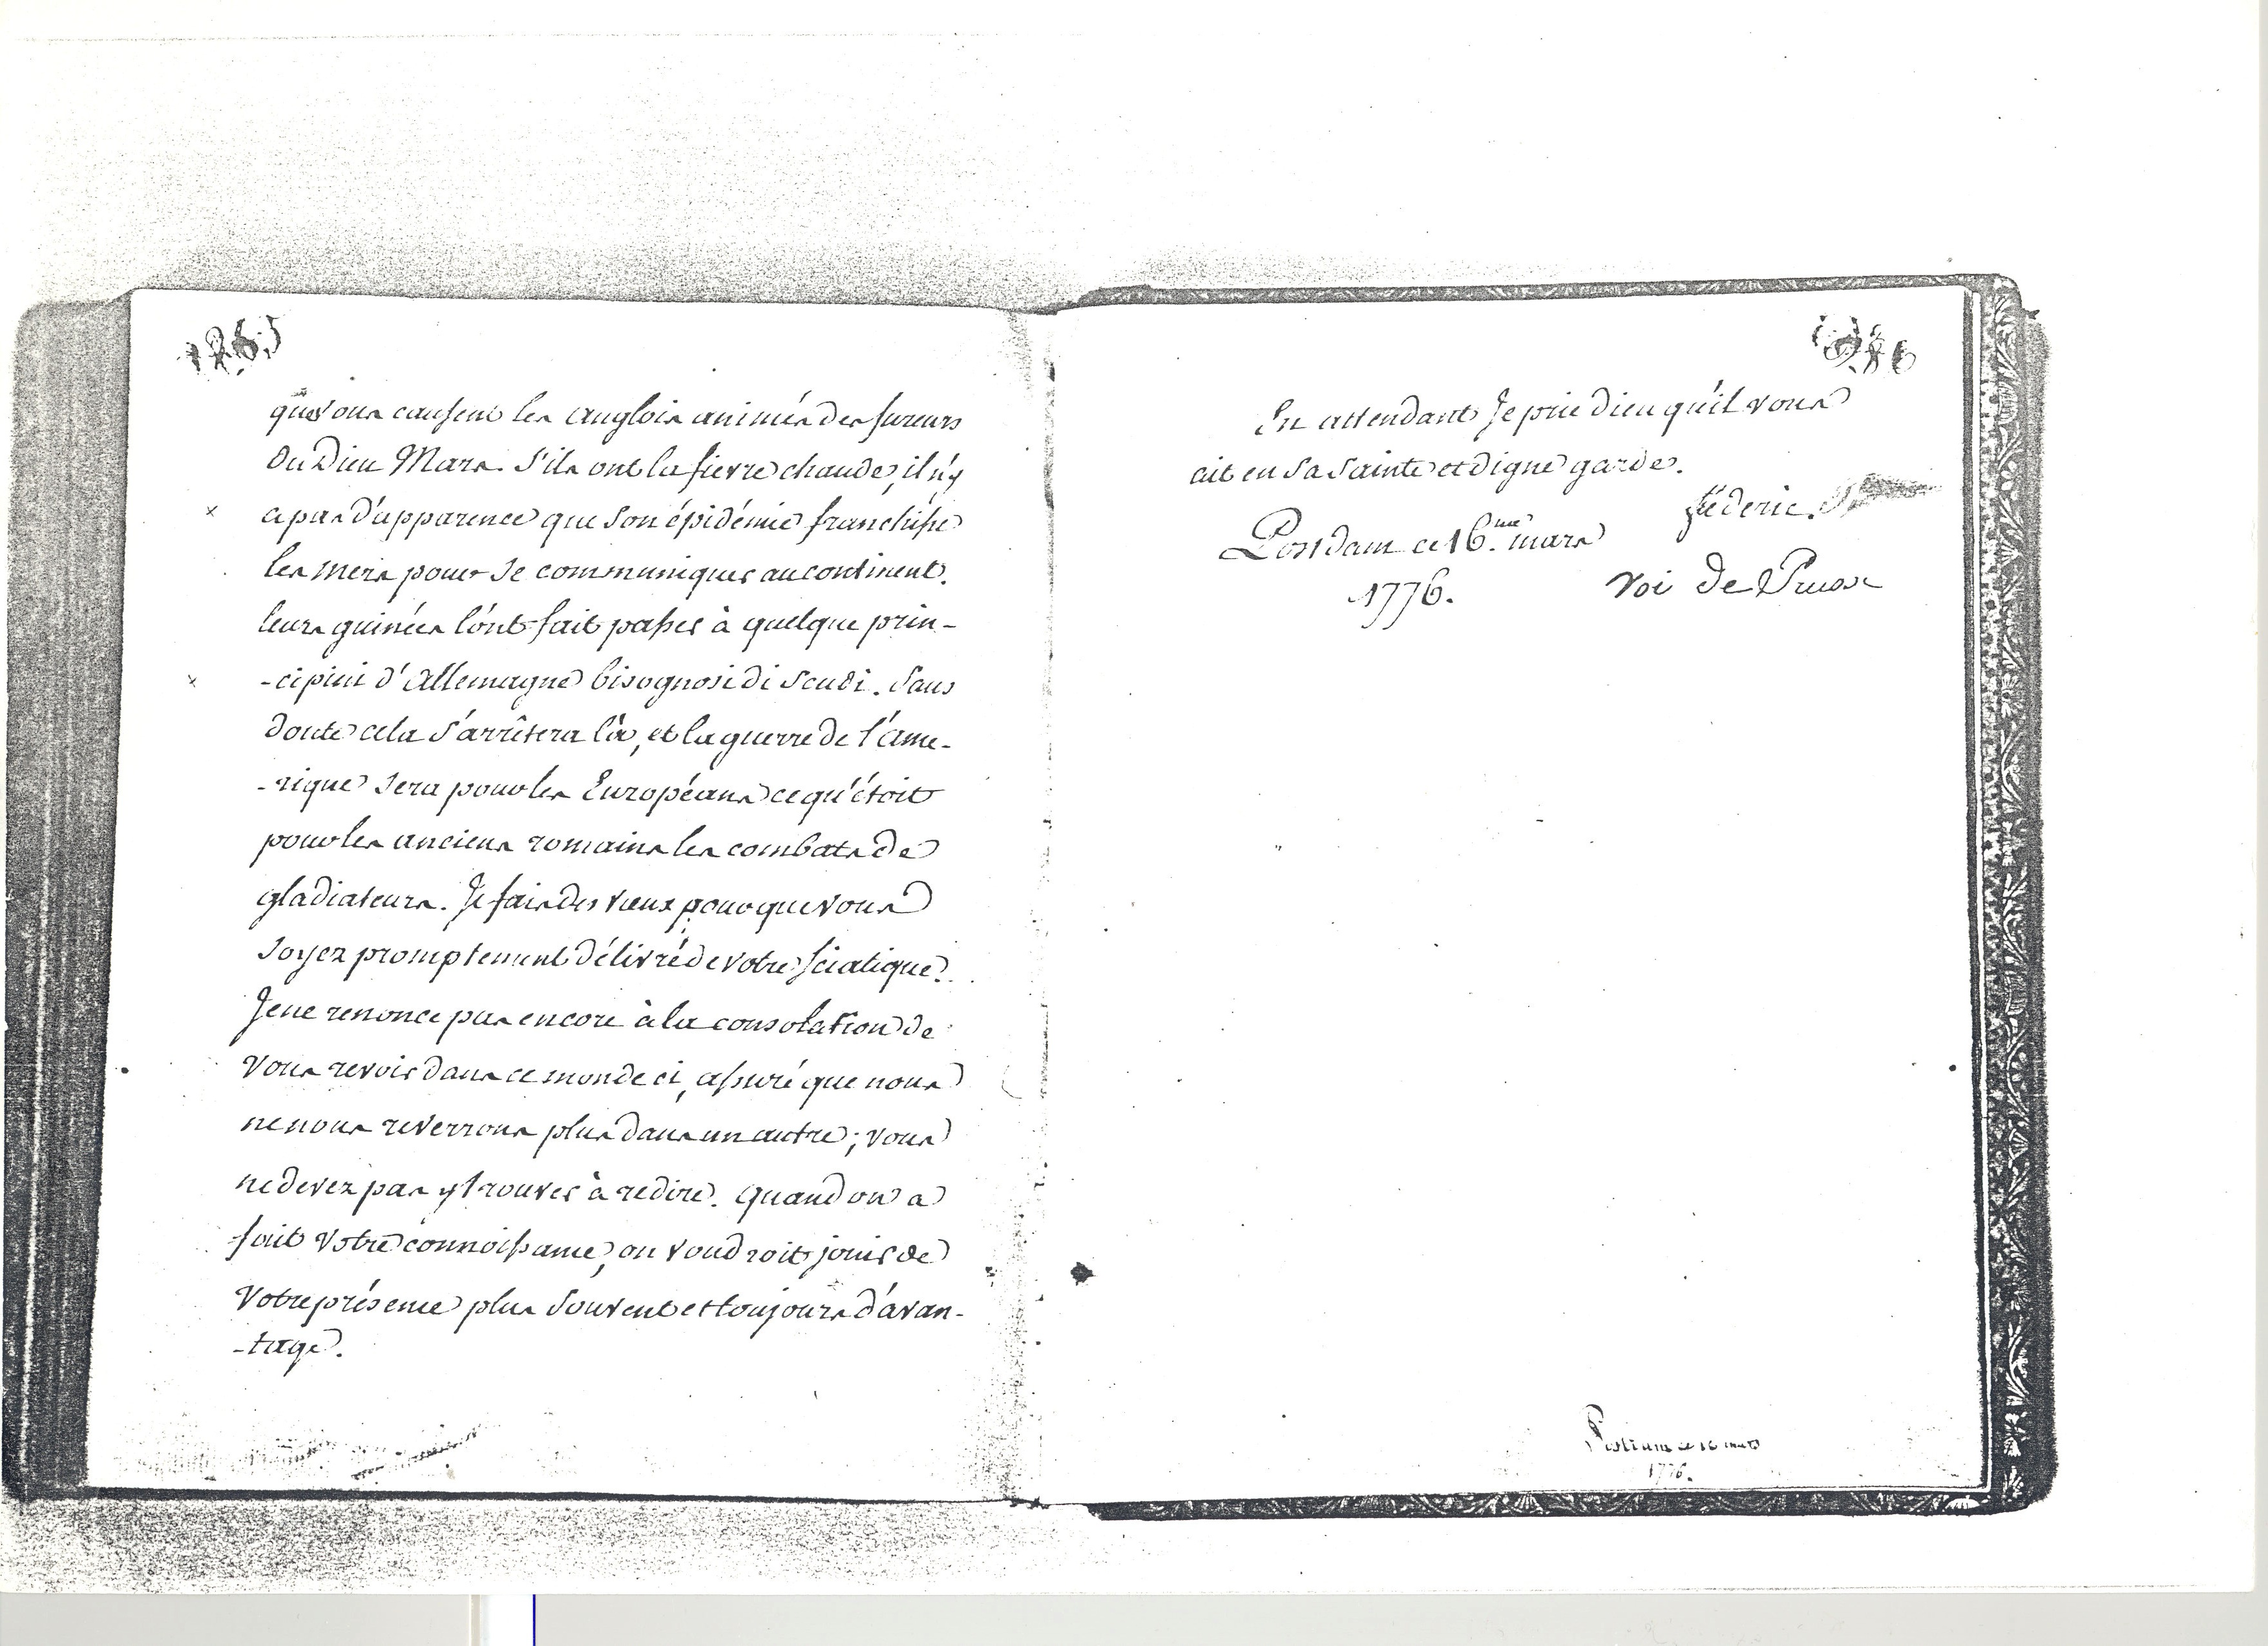 que vous causent les anglois animés des fureurs
du Dieu Mars. S'ils ont la fievre chaude, il n'y
a pas d'apparence que son épidémie franchisse
les mers pour se communiquer au continent.
leurs guinées l'ont fait passer à quelque prin-
-cipini d'Allemagne bisognosi di scudi. Sans
doute cela s'arrêtera là, et la guerre de l'ame-
-rique sera pour les Européans ce qu'étoit
pour les anciens romains les combats de
gladiateurs. Je fais des vœux pour que vous
soyez promptement délivré de votre sciatique.
Je ne renonce pas encore à la consolation de
vous revoir dans ce monde ci, assuré que nous
ne nous reverrons plus dans un autre; vous
ne devez pas y trouver à redire. quand on a
fait votre connoissance, on voudroit jouir de
votre présence plus souvent et toujours d'avan-
-tage.
En attendant Je prie Dieu qu'il vous
ait en sa sainte et digne garde.
féderic.
Postdam ce 16.me mars
1776.
roi de Prusse
Postdam ce 16 mars
1776.